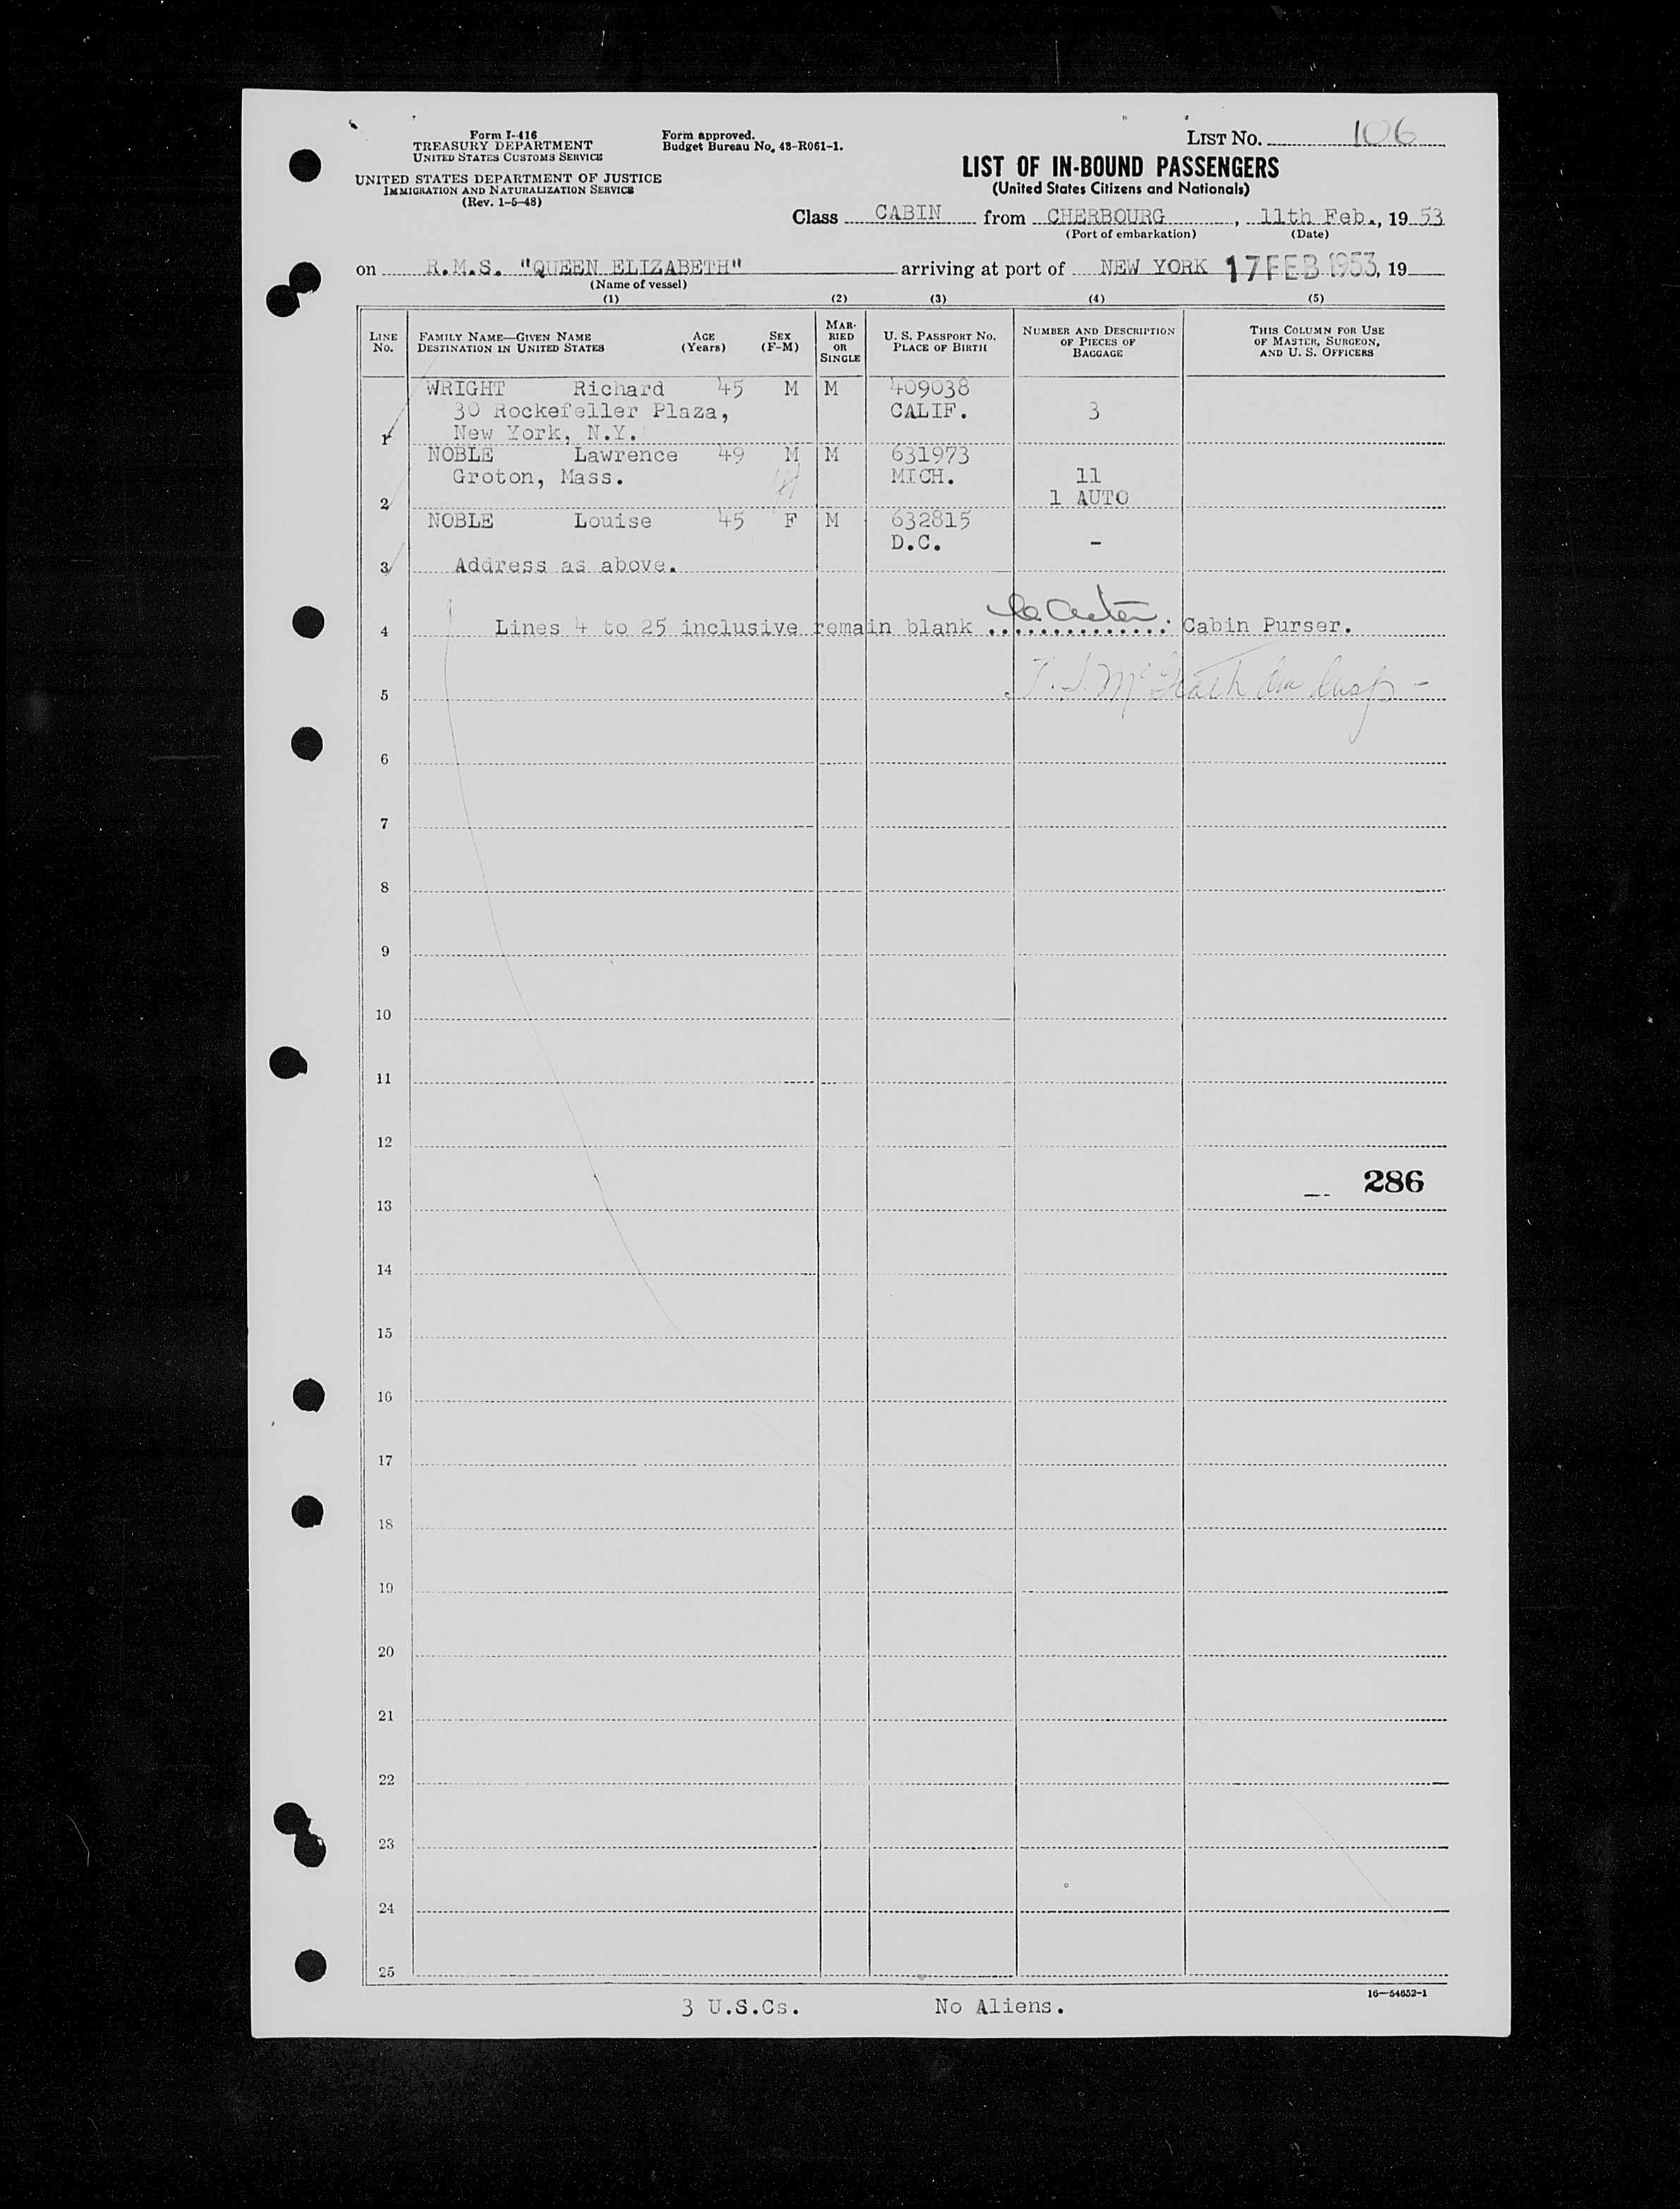 Form I-416
TREASURY DEPARTMENT
UNITED STATES CUSTOMS SERVICE
UNITED STATES DEPARTMENT OF JUSTICE
IMMIGRATION AND NATURALIZATION SERVICE
(Rev. 1-5-48)
Form approved.
Budget Bureau No. 43-R061-1.
LIST NO. 106
LIST OF IN-BOUND PASSENGERS
(United States Citizens and Nationals)
Class CABIN from CHERBOURG, 11th Feb., 19 53
(Port of embarkation) (Date)
on R.M.S. "QUEEN ELIZABETH" arriving at port of NEW YORK 17 FEB 1953, 19
(Name of vessel)
(1) (2) (3) (4) (5)
LINE NO. FAMILY NAME—GIVEN NAME DESTINATION IN UNITED STATES AGE (Years) SEX (F-M) MARRIED OR SINGLE U. S. PASSPORT NO. PLACE OF BIRTH NUMBER AND DESCRIPTION OF PIECES OF BAGGAGE THIS COLUMN FOR USE OF MASTER, SURGEON, AND U. S. OFFICERS
WRIGHT Richard 45 M M 409038
30 Rockefeller Plaza, CALIF. 3
1 New York, N.Y.
NOBLE Lawrence 49 M M 631973
Groton, Mass. MICH. 11
2 1 AUTO
NOBLE Louise 45 F M 632815
D.C. -
3 Address as above.
4 Lines 4 to 25 inclusive remain blank ............... Cabin Purser.
5 T. J McGrath
6
7
8
9
10
11
12
286
13
14
15
16
17
18
19
20
21
22
23
24
25
16—54652-1
3 U.S.Cs. No Aliens.